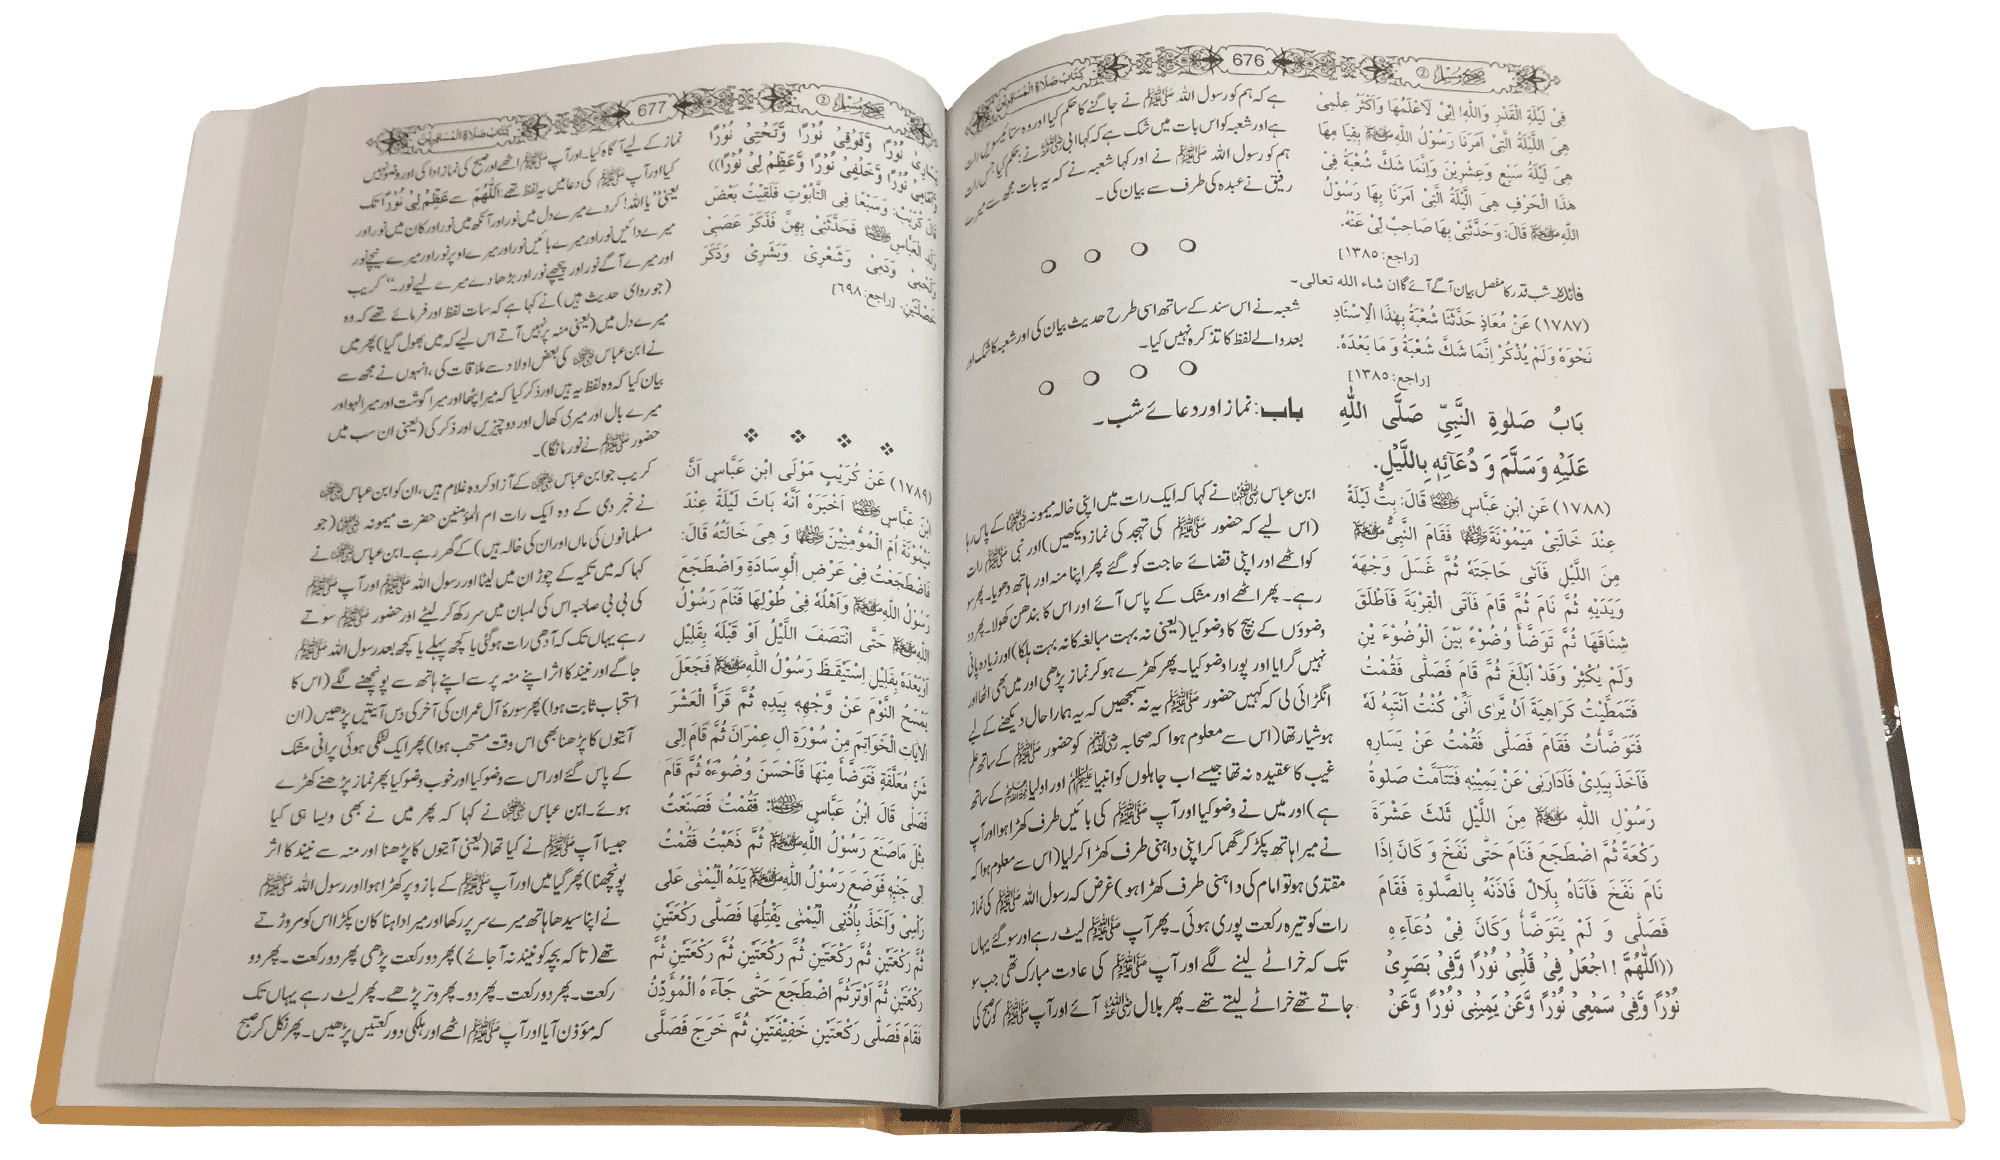 صحیح مسلم ②
676
کتاب صلاۃ المسافرین
فِیْ لَیْلَةِ الْقَدْرِ وَاللّٰهِ! اِنِّیْ لَاَعْلَمُهَا وَاَكْثَرُ عِلْمِیْ
هِیَ اللَّیْلَةُ الَّتِیْ اَمَرَنَا رَسُوْلُ اللّٰهِ ﷺ بِقِیَامِهَا
هِیَ لَیْلَةُ سَبْعٍ وَعِشْرِیْنَ وَاِنَّمَا شَكَّ شُعْبَةُ فِیْ
هٰذَا الْحَرْفِ هِیَ الَّیْلَةُ الَّتِیْ اَمَرَنَا بِهَا رَسُوْلُ
اللّٰهِ ﷺ قَالَ: وَحَدَّثَنِیْ بِهَا صَاحِبٌ لِیْ عَنْهُ.
[راجع: ١٣٨٥]
فائدہ۔ شب قدر کا مفصل بیان آگے آئے گا ان شاء اللہ تعالی۔
(١٧٨٧) عَنْ مُعَاذٍ حَدَّثَنَا شُعْبَةُ بِهٰذَا الْاِسْنَادِ
نَحْوَهٗ وَلَمْ یُذْكُرْ اِنَّمَا شَكَّ شُعْبَةُ وَ مَا بَعْدَهٗ.
[راجع: ١٣٨٥]
بَابُ صَلٰوةِ النَّبِیِّ صَلَّی اللّٰهُ
عَلَیْهِ وَسَلَّمَ وَ دُعَآئِهٖ بِاللَّیْلِ.
(١٧٨٨) عَنِ ابْنِ عَبَّاسٍ قَالَ: بِتُّ لَیْلَةً
عِنْدَ خَالَتِیْ مَیْمُوْنَةَ فَقَامَ النَّبِیُّ ﷺ
مِنَ اللَّیْلِ فَاَتٰی حَاجَتَهٗ ثُمَّ غَسَلَ وَجْهَهٗ
وَیَدَیْهِ ثُمَّ نَامَ ثُمَّ قَامَ فَاَتَی الْقِرْبَةَ فَاَطْلَقَ
شِنَاقَهَا ثُمَّ تَوَضَّاَ وُضُوْءً بَیْنَ الْوُضُوْءَ یْنِ
وَلَمْ یُكْثِرْ وَقَدْ اَبْلَغَ ثُمَّ قَامَ فَصَلّٰی فَقُمْتُ
فَتَمَطَّیْتُ كَرَاهِیَةَ اَنْ یَّرٰی اَنِّیْ كُنْتُ اَنْتَبِهُ لَهٗ
فَتَوَضَّاْتُ فَقَامَ فَصَلّٰی فَقُمْتُ عَنْ یَسَارِهٖ
فَاَخَذَ بِیَدِیْ فَاَدَارَنِیْ عَنْ یَمِیْنِهٖ فَتَتَامَّتْ صَلٰوةُ
رَسُوْلِ اللّٰهِ ﷺ مِنَ اللَّیْلِ ثَلٰثَ عَشْرَةَ
رَكْعَةً ثُمَّ اضْطَجَعَ فَنَامَ حَتّٰی نَفَخَ وَ كَانَ اِذَا
نَامَ نَفَخَ فَاَتَاهُ بِلَالٌ فَاٰذَنَهٗ بِالصَّلٰوةِ فَقَامَ
فَصَلّٰی وَ لَمْ یَتَوَضَّاْ وَكَانَ فِیْ دُعَآءِهٖ
((اَللّٰهُمَّ! اجْعَلْ فِیْ قَلْبِیْ نُوْرًا وَّفِیْ بَصَرِیْ
نُوْرًا وَّفِیْ سَمْعِیْ نُوْرًا وَّعَنْ یَمِیْنِیْ نُوْرًا وَّعَنْ
ہے کہ ہم کو رسول اللہ ﷺ نے جاگنے کا حکم کیا اور وہ ستائیسویں رات
ہے اور شعبہ کو اس بات میں شک ہے کہ کہا ابی نے: حکم کیا جس رات
ہم کو رسول اللہ ﷺ نے اور کہا شعبہ نے کہ یہ بات مجھ سے میرے
رفیق نے عبدہ کی طرف سے بیان کی۔
شعبہ نے اس سند کے ساتھ اسی طرح حدیث بیان کی اور شعبہ کا شک اور
بعد والے لفظ کا تذکرہ نہیں کیا۔
باب: نماز اور دعائے شب۔
ابن عباس نے کہا کہ ایک رات میں اپنی خالہ میمونہ کے پاس رہا
(اس لیے کہ حضور ﷺ کی تہجد کی نماز دیکھیں) اور نبی ﷺ رات
کو اٹھے اور اپنی قضائے حاجت کو گئے پھر اپنا منہ اور ہاتھ دھویا۔ پھر سو
رہے۔ پھر اٹھے اور مشک کے پاس آئے اور اس کا بندھن کھولا۔ پھر دو
وضوؤں کے بیچ کا وضو کیا (یعنی نہ بہت مبالغہ کا نہ بہت ہلکا) اور زیادہ پانی
نہیں گرایا اور پورا وضو کیا۔ پھر کھڑے ہو کر نماز پڑھی اور میں بھی اٹھا اور
انگڑائی لی کہ کہیں حضور ﷺ یہ نہ سمجھیں کہ یہ ہمارا حال دیکھنے کے لیے
ہوشیار تھا (اس سے معلوم ہوا کہ صحابہ کو حضور ﷺ کے ساتھ علم
غیب کا عقیدہ نہ تھا جیسے اب جاہلوں کو انبیا اور اولیا کے ساتھ
ہے) اور میں نے وضو کیا اور آپ ﷺ کی بائیں طرف کھڑا ہوا اور آپ
نے میرا ہاتھ پکڑ کر گھما کر اپنی داہنی طرف کھڑا کر لیا (اس سے معلوم ہوا کہ
مقتدی ہو تو امام کی داہنی طرف کھڑا ہو) غرض کہ رسول اللہ ﷺ کی نماز
رات کو تیرہ رکعت پوری ہوئی۔ پھر آپ ﷺ لیٹ رہے اور سو گئے یہاں
تک کہ خراٹے لینے لگے اور آپ ﷺ کی عادت مبارک تھی جب سو
جاتے تھے خراٹے لیتے تھے۔ پھر بلال آئے اور آپ ﷺ کو صبح کی
صحیح مسلم ②
677
کتاب صلاۃ المسافرین
یَسَارِیْ نُوْرًا وَّفَوْقِیْ نُوْرًا وَّتَحْتِیْ نُوْرًا
وَّاَمَامِیْ نُوْرًا وَّخَلْفِیْ نُوْرًا وَّعَظِّمْ لِیْ نُوْرًا))
قَالَ كُرَیْبٌ: وَسَبْعًا فِی التَّابُوْتِ فَلَقِیْتُ بَعْضَ
وَلَدِ الْعَبَّاسِ فَحَدَّثَنِیْ بِهِنَّ فَذَكَرَ عَصَبِیْ
وَلَحْمِیْ وَدَمِیْ وَشَعْرِیْ وَبَشَرِیْ وَذَكَرَ
خَصْلَتَیْنِ. [راجع: ٦٩٨]
(١٧٨٩) عَنْ كُرَیْبٍ مَوْلَی ابْنِ عَبَّاسٍ اَنَّ
ابْنَ عَبَّاسٍ اَخْبَرَهٗ اَنَّهٗ بَاتَ لَیْلَةً عِنْدَ
مَیْمُوْنَةَ اُمِّ الْمُوْمِنِیْنَ وَ هِیَ خَالَتُهٗ قَالَ:
فَاضْطَجَعْتُ فِیْ عَرْضِ الْوِسَادَةِ وَاضْطَجَعَ
رَسُوْلُ اللّٰهِ ﷺ وَاَهْلُهٗ فِیْ طُوْلِهَا فَنَامَ رَسُوْلُ
اللّٰهِ ﷺ حَتّٰی انْتَصَفَ اللَّیْلُ اَوْ قَبْلَهٗ بِقَلِیْلٍ
اَوْبَعْدَهٗ بِقَلِیْلٍ اِسْتَیْقَظَ رَسُوْلُ اللّٰهِ ﷺ فَجَعَلَ
یَمْسَحُ النَّوْمَ عَنْ وَّجْهِهٖ بِیَدِهٖ ثُمَّ قَرَأَ الْعَشْرَ
الْاٰیَاتِ الْخَوَاتِمَ مِنْ سُوْرَةِ اٰلِ عِمْرَانَ ثُمَّ قَامَ اِلٰی
شَنٍّ مُعَلَّقَةٍ فَتَوَضَّاَ مِنْهَا فَاَحْسَنَ وُضُوْءَهٗ ثُمَّ قَامَ
فَصَلّٰی قَالَ ابْنُ عَبَّاسٍ: فَقُمْتُ فَصَنَعْتُ
مِثْلَ مَاصَنَعَ رَسُوْلُ اللّٰهِ ﷺ ثُمَّ ذَهَبْتُ فَقُمْتُ
اِلٰی جَنْبِهٖ فَوَضَعَ رَسُوْلُ اللّٰهِ ﷺ یَدَهُ الْیُمْنٰی عَلٰی
رَاْسِیْ وَاَخَذَ بِاُذُنِی الْیُمْنٰی یَفْتِلُهَا فَصَلّٰی رَكْعَتَیْنِ
ثُمَّ رَكْعَتَیْنِ ثُمَّ رَكْعَتَیْنِ ثُمَّ رَكْعَتَیْنِ ثُمَّ رَكْعَتَیْنِ ثُمَّ
رَكْعَتَیْنِ ثُمَّ اَوْتَرَثُمَّ اضْطَجَعَ حَتّٰی جَآءَ هُ الْمُؤَذِّنُ
فَقَامَ فَصَلّٰی رَكْعَتَیْنِ خَفِیْفَتَیْنِ ثُمَّ خَرَجَ فَصَلَّی
نماز کے لیے آگاہ کیا۔ اور آپ ﷺ اٹھے اور صبح کی نماز ادا کی اور وضو نہیں
کیا اور آپ ﷺ کی دعا میں یہ لفظ تھے اَللّٰهُمَّ سے عَظِّمْ لِیْ نُوْرًا تک
یعنی ”یا اللہ! کر دے میرے دل میں نور اور آنکھ میں نور اور کان میں نور اور
میرے دائیں نور اور میرے بائیں نور اور میرے اوپر نور اور میرے نیچے نور
اور میرے آگے نور اور پیچھے نور اور بڑھا دے میرے لیے نور۔“ کریب
(جو راوی حدیث ہیں) نے کہا ہے کہ سات لفظ اور فرمائے تھے کہ وہ
میرے دل میں (یعنی منہ پر نہیں آتے اس لیے کہ میں بھول گیا) پھر میں
نے ابن عباس کی بعض اولاد سے ملاقات کی، انہوں نے مجھ سے
بیان کیا کہ وہ لفظ یہ ہیں اور ذکر کیا کہ میرا پٹھا اور میرا گوشت اور میرا لہو اور
میرے بال اور میری کھال اور دو چیزیں اور ذکر کی (یعنی ان سب میں
حضور ﷺ نے نور مانگا)۔
کریب جو ابن عباس کے آزاد کردہ غلام ہیں، ان کو ابن عباس
نے خبر دی کے وہ ایک رات ام المؤمنین حضرت میمونہ (جو
مسلمانوں کی ماں اور ان کی خالہ ہیں) کے گھر رہے۔ ابن عباس نے
کہا کہ میں تکیہ کے چوڑان میں لیٹا اور رسول اللہ ﷺ اور آپ ﷺ
کی بی بی صاحبہ اس کی لمبان میں سر رکھ کر لیٹے اور حضور ﷺ سوتے
رہے یہاں تک کہ آدھی رات ہوگئی یا کچھ پہلے یا کچھ بعد رسول اللہ ﷺ
جاگے اور نیند کا اثر اپنے منہ پر سے اپنے ہاتھ سے پونچھنے لگے (اس کا
استحباب ثابت ہوا) پھر سورۂ آل عمران کی آخر کی دس آیتیں پڑھیں (ان
آیتوں کا پڑھنا بھی اس وقت مستحب ہوا) پھر ایک لٹکی ہوئی پرانی مشک
کے پاس گئے اور اس سے وضو کیا اور خوب وضو کیا پھر نماز پڑھنے کھڑے
ہوئے۔ ابن عباس نے کہا کہ پھر میں نے بھی ویسا ہی کیا
جیسا آپ ﷺ نے کیا تھا (یعنی آیتوں کا پڑھنا اور منہ سے نیند کا اثر
پونچھنا) پھر گیا میں اور آپ ﷺ کے بازو پر کھڑا ہوا اور رسول اللہ ﷺ
نے اپنا سیدھا ہاتھ میرے سر پر رکھا اور میرا داہنا کان پکڑا اس کو مروڑتے
تھے (تا کہ بچہ کو نیند نہ آ جائے) پھر دو رکعت پڑھی پھر دو رکعت۔ پھر دو
رکعت۔ پھر دو رکعت۔ پھر دو۔ پھر وتر پڑھے۔ پھر لیٹ رہے یہاں تک
کہ مؤذن آیا اور آپ ﷺ اٹھے اور ہلکی دو رکعتیں پڑھیں۔ پھر نکل کر صبح